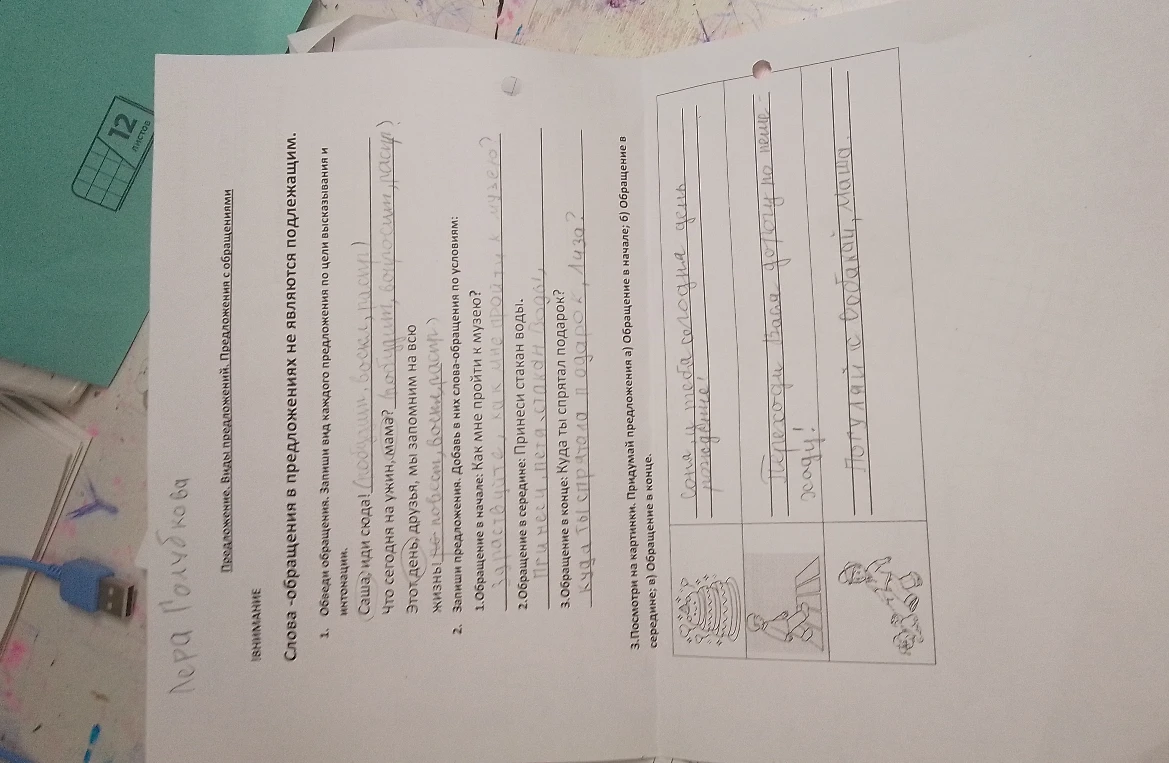 12
листов
Лера Полубкова
Предложение. Виды предложений. Предложения с обращениями
!ВНИМАНИЕ
Слова -обращения в предложениях не являются подлежащим.
1. Обведи обращения. Запиши вид каждого предложения по цели высказывания и
интонации.
Саша, иди сюда! (побудит, воскл, распр)
Что сегодня на ужин, мама? (побудит, вопросит, распр)
Этот день, друзья, мы запомним на всю
жизнь! повест, воскл, распр)
2. Запиши предложения. Добавь в них слова-обращения по условиям:
1.Обращение в начале: Как мне пройти к музею?
Здраствуйте, как мне пройти к музею?
2.Обращение в середине: Принеси стакан воды.
Принеси, Петя, стакан воды,
3.Обращение в конце: Куда ты спрятал подарок?
Куда ты спрятала подарок, Лиза?
3.Посмотри на картинки. Придумай предложения а) Обращение в начале; б) Обращение в
середине; в) Обращение в конце.
Соня, у тебя сегодня день
рождение!
Переходи Вася дорогу по пеше-
ходу!
Погуляй с собакой, Маша.